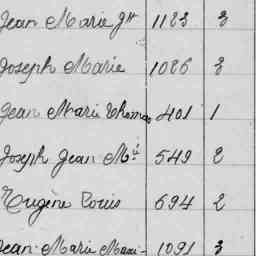 Jean Marie Gme 1183 3
Joseph Marie 1086 3
Jean Marie Thomas 401 1
Joseph Jean Mie 549 2
Eugène Louis 694 2
Jean-Marie Maxi- 1091 3